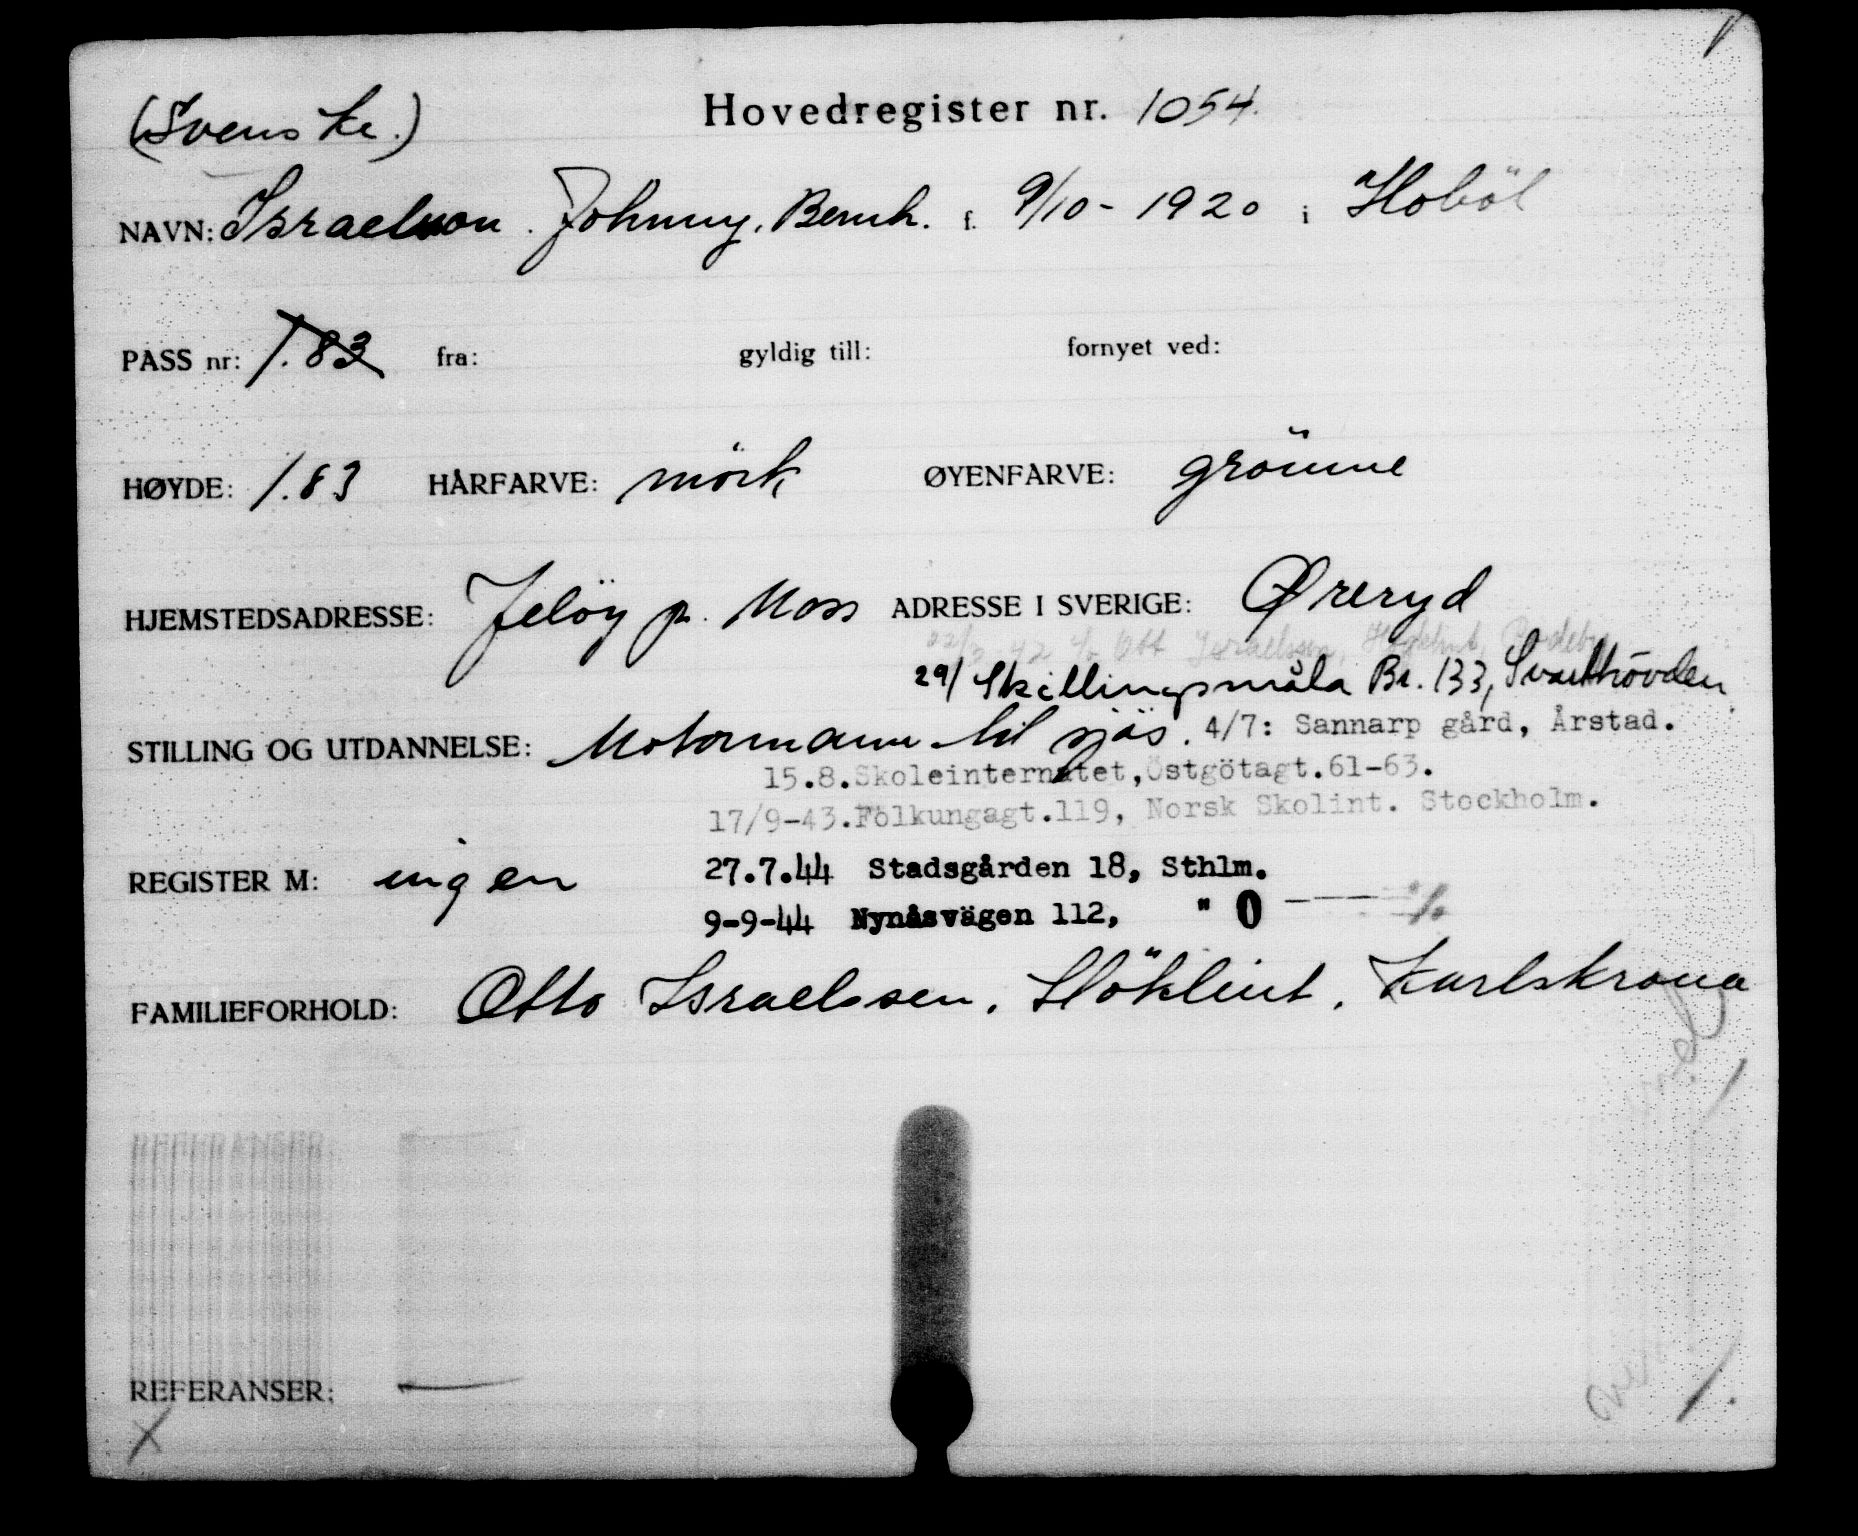 (Svenske.)
Hovedregister nr. 1054.
NAVN: Israelson. Johnny. Bernh. f. 9/10- 1920 i Hoböl
PASS nr: 1.83 fra: gyldig till: fornyet ved:
HØYDE: 1.83 HÅRFARVE: mörk ØYENFARVE: grönne
HJEMSTEDSADRESSE: Jelöy p. Moss ADRESSE I SVERIGE: Øreryd
22/3-42 c/o Ott Israelssen,
29/ Skillingsmåla Br. 133, Svarthövden
STILLING OG UTDANNELSE: Motormann til sjös. 4/7: Sannarp gård, Årstad.
15.8.Skoleinternatet,Östgötagt.61-63.
17/9-43.Fölkungagt.119, Norsk Skolint. Stockholm.
REGISTER M: ingen 27.7.44 Stadsgården 18, Sthlm.
9-9-44 Nynäsvägen 112, " 0 ——— %
FAMILIEFORHOLD: Otto Israelssen. Höklint. Karlskrona
REFERANSER: —
X